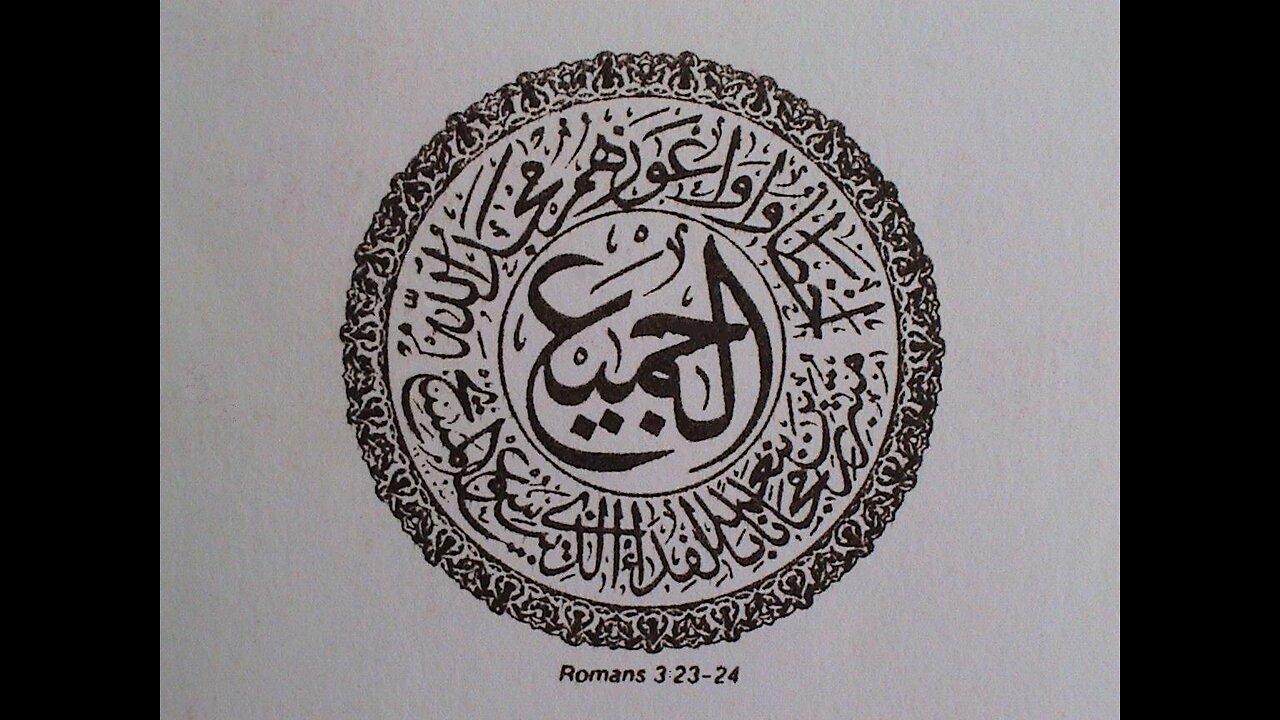 الجميع
اخطأوا وأعوزهم مجد الله
متبررين مجانا بنعمته بالفداء الذي بيسوع المسيح
Romans 3:23-24